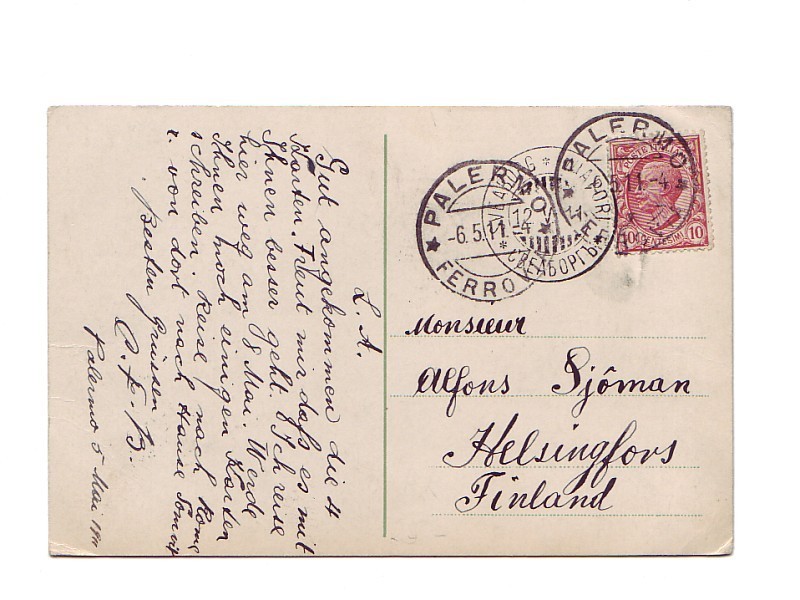 L. A.
Gut angekommen die 4
Karten. Freut mir daß es mit
Ihnen besser geht. Ich reise
hier weg am 8 Mai. Werde
Ihnen noch einigen Karten
schreiben. Reise nach Rome
u. von dort nach Hause Somit
besten Grüssen
C. F. B.
Palermo 5 Mai 1911
PALERMO
-6.5.11.-4
FERRO
12.V
СВЕАБОРГЪ
PALERMO
10 CENTESIMI 10
Monsieur
Alfons Sjöman
Helsingfors
Finland